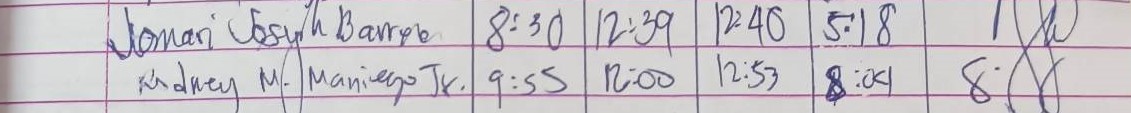 Jomari Joseph Barreto 8:30 12:39 12:40 5:18
Rodney M. Maniego Jr. 9:55 12:00 12:53 8:04 8: